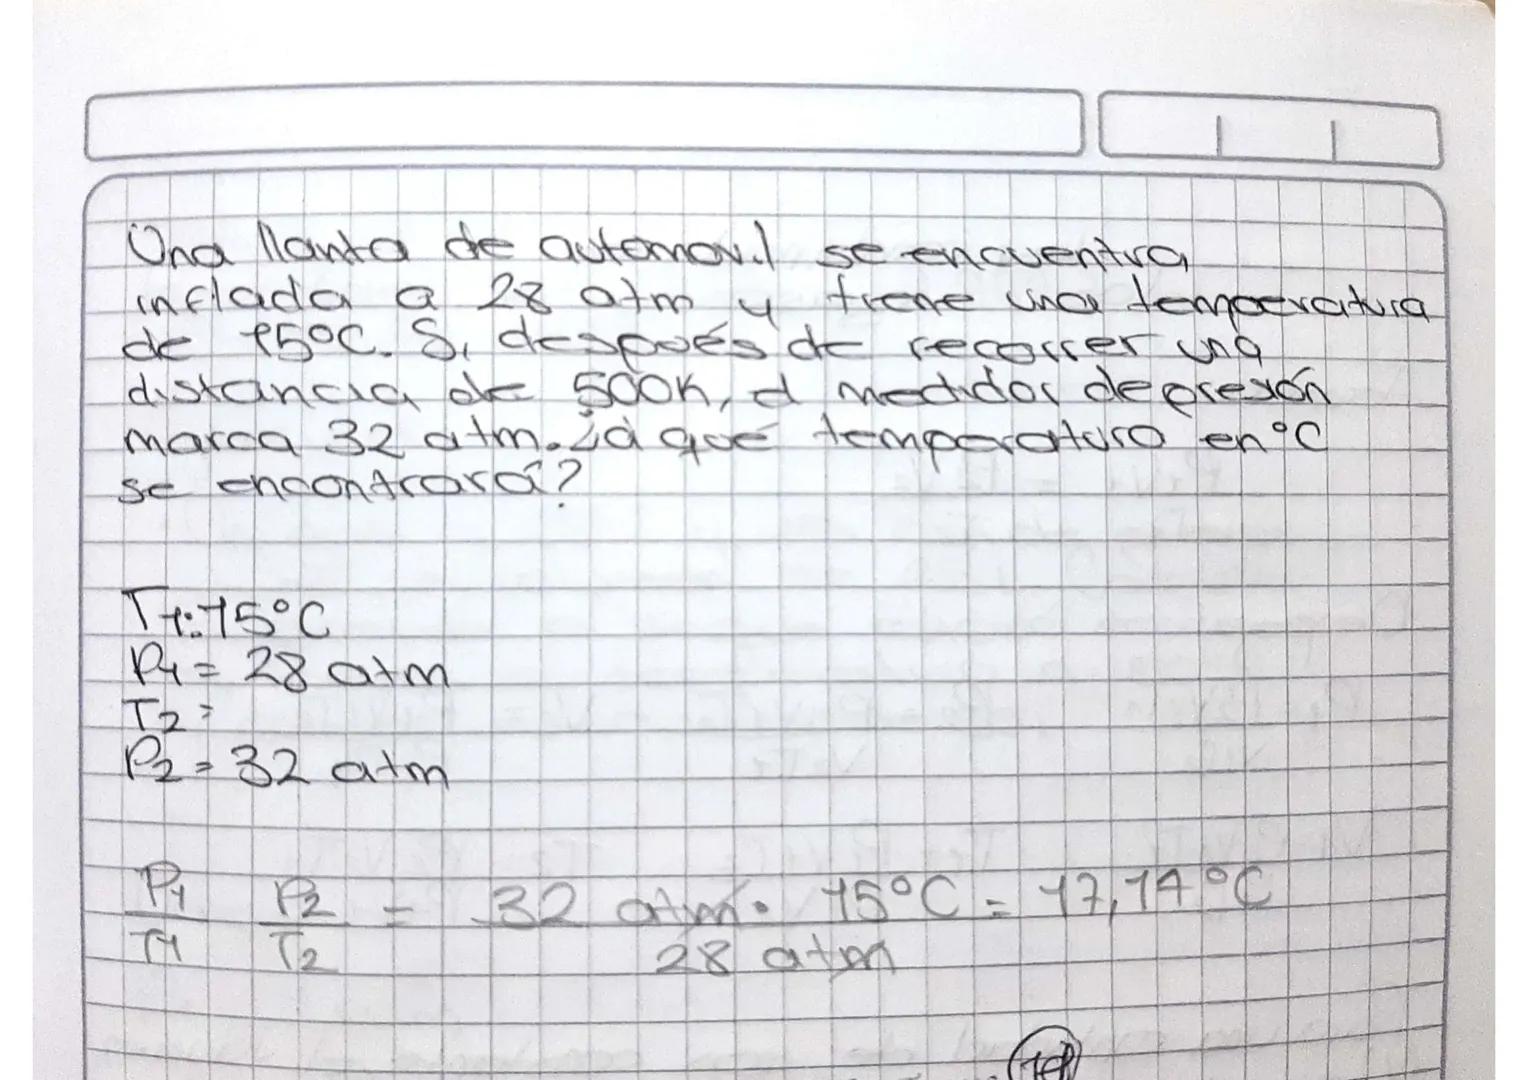 Una llanta de automovil se encuentra
inflada a 28 atm y tiene una temperatura
de 15°C. Si después de recorrer una
distancia de 500K, el medidor de presión
marca 32 atm. ¿a qué temperatura en °C
se encontrará?
T1: 15°C
P1 = 28 atm
T2 =
P2 = 32 atm
P1 P2 = 32 atm. 15°C = 17,14°C
T1 T2 28 atm